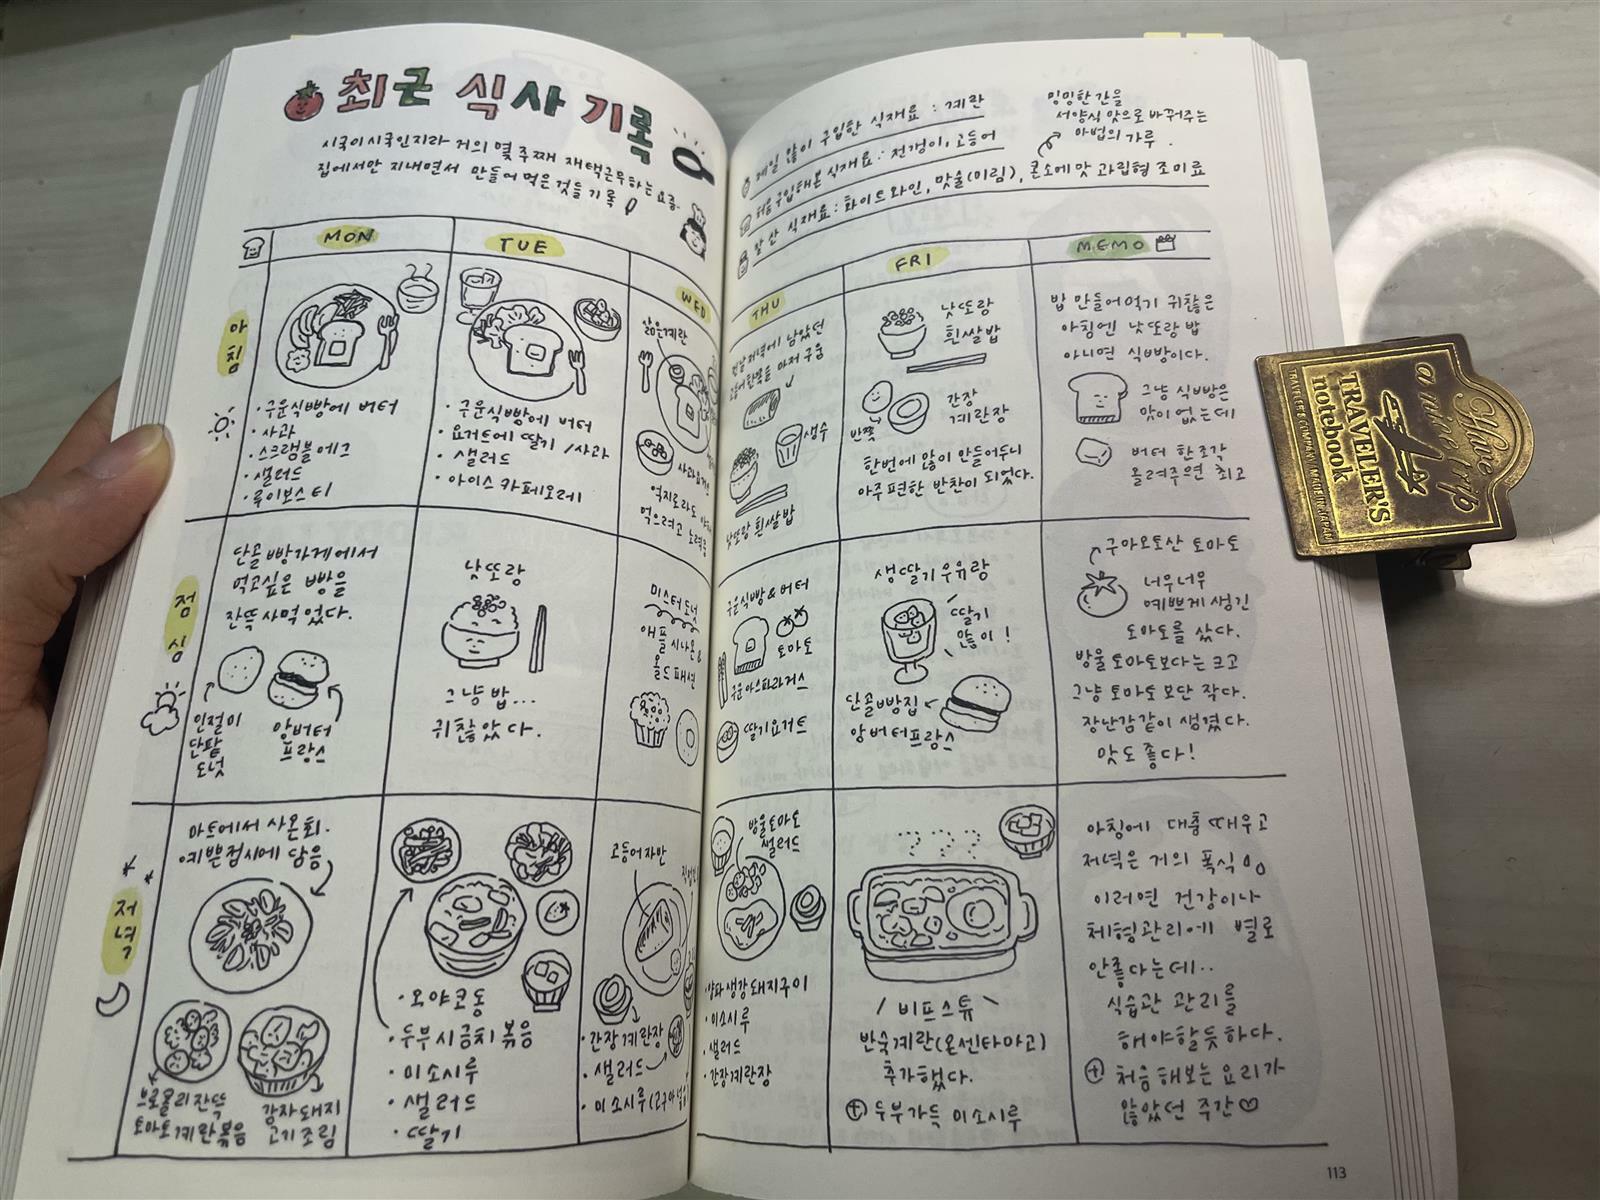 최근 식사 기록
시국이 시국인지라 거의 몇 주째 재택근무하는 요즘.
집에서만 지내면서 만들어 먹은 것들 기록
제일 많이 구입한 식재료 : 계란
처음 구입해본 식재료 : 전갱이, 고등어
잘 산 식재료 : 화이트와인, 맛술(미림), 콘소메맛 과립형 조미료
밍밍한 간을
서양식 맛으로 바꿔주는
마법의 가루.
MON
TUE
WED
THU
FRI
MEMO
아침
· 구운식빵에 버터
· 사과
· 스크램블에그
· 샐러드
· 루이보스티
· 구운식빵에 버터
· 요거트에 딸기/사과
· 샐러드
· 아이스 카페오레
삶은계란
사과요거트
억지로라도
먹으려고 노력
전날 저녁에 남았던
고등어 한쪽을 마저 구움
생수
낫또랑 흰쌀밥
낫또랑
흰쌀밥
반쪽
간장
계란장
한번에 많이 만들어두니
아주 편한 반찬이 되었다.
밥 만들어 먹기 귀찮은
아침엔 낫또랑 밥
아니면 식빵이다.
그냥 식빵은
맛이 없는데
버터 한 조각
올려주면 최고
점심
단골 빵가게에서
먹고싶은 빵을
잔뜩 사먹었다.
인절미
단팥
도넛
앙버터
프랑스
낫또랑
그냥 밥...
귀찮았다.
미스터도넛
애플시나몬&
올드패션
구운식빵&버터
토마토
구운아스파라거스
딸기요거트
생딸기우유랑
딸기
많이!
단골빵집
앙버터프랑스
구마모토산 토마토
너무너무
예쁘게 생긴
토마토를 샀다.
방울토마토보다는 크고
그냥 토마토보단 작다.
장난감같이 생겼다.
맛도 좋다!
저녁
마트에서 사온 회.
예쁜접시에 담음
브로콜리 잔뜩
토마토계란볶음
감자돼지
고기조림
· 오야코동
· 두부시금치볶음
· 미소시루
· 샐러드
· 딸기
고등어자반
· 간장계란장
· 샐러드
· 미소시루
방울토마토
샐러드
· 양파생강돼지구이
· 미소시루
· 샐러드
· 간장계란장
???
비프스튜
반숙계란(온센타마고)
추가했다.
⊕ 두부가득 미소시루
아침에 대충 때우고
저녁은 거의 폭식
이러면 건강이나
체형관리에 별로
안좋다는데..
식습관 관리를
해야할듯하다.
⊕ 처음 해보는 요리가
많았던 주간♡
113
Have
a nice trip
TRAVELER'S
notebook
TRAVELER'S COMPANY MADE IN JAPAN